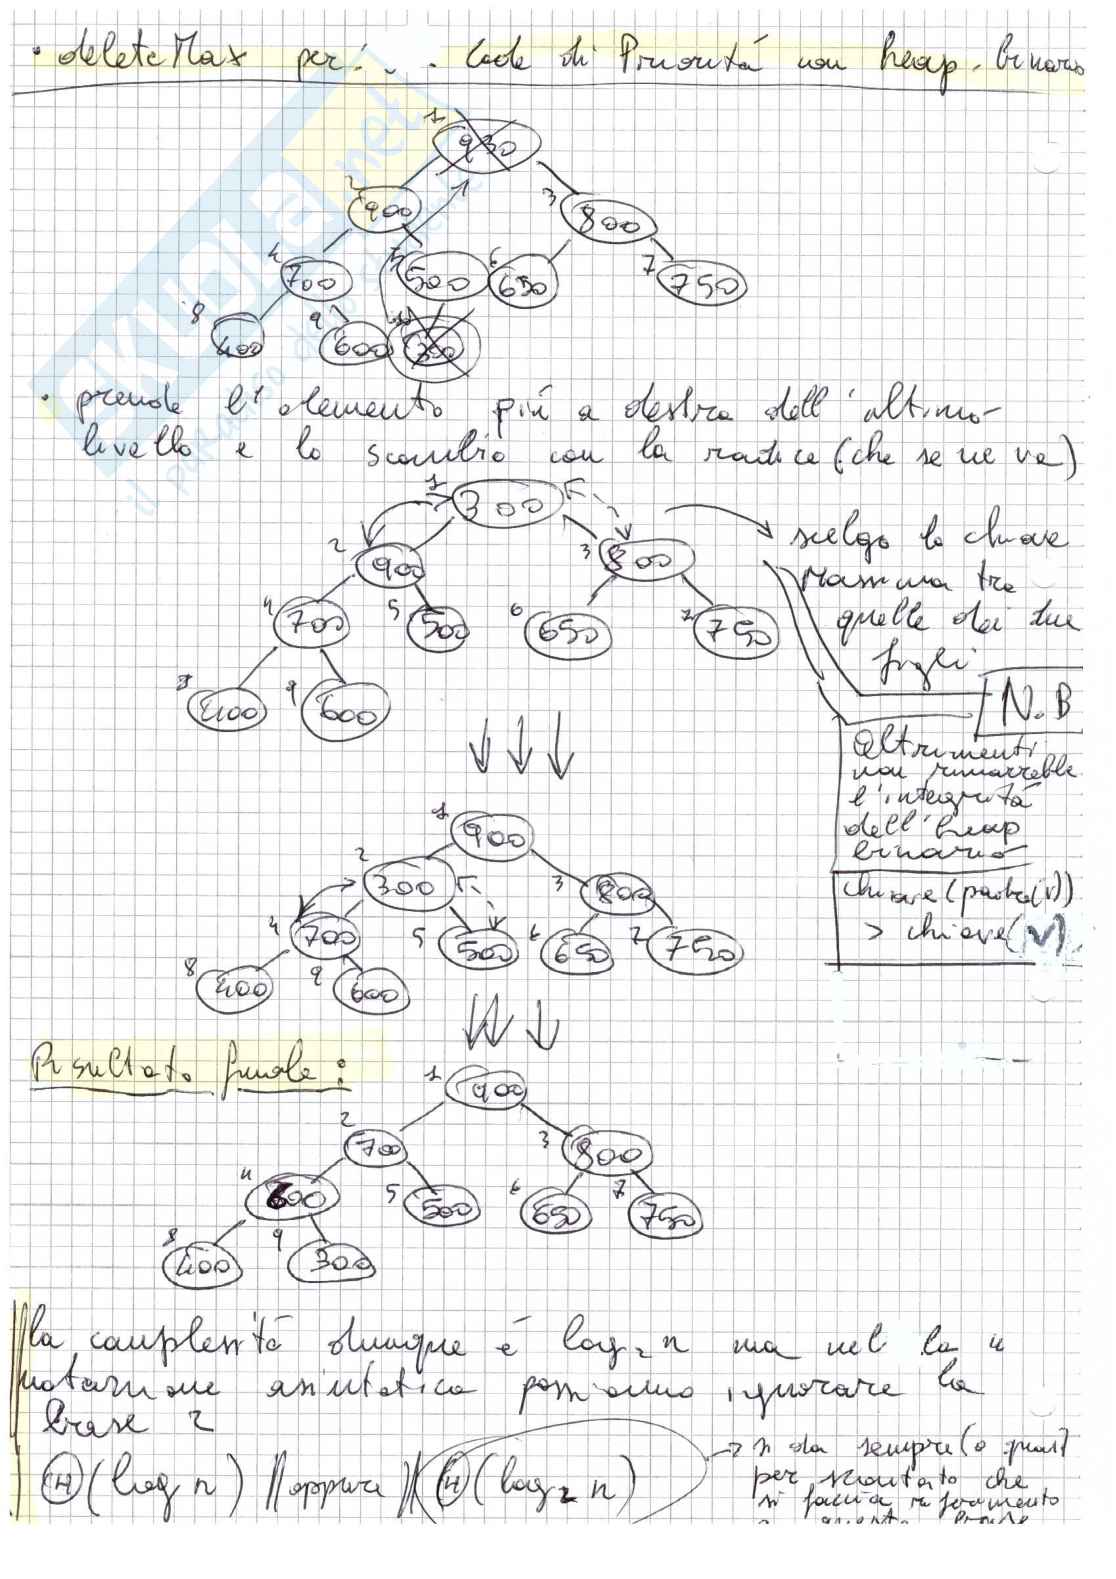 • deleteMax per . . . Code di Prioritá con heap binario
1
930
2
900
3
800
4
700
5
500
6
650
7
750
8
400
9
600
10
300
• prende l'elemento piú a destra dell'ultimo
livello e lo scambio con la radice (che se ne va)
1
300
2
900
3
800
scelgo la chiave
massima tra
quelle dei due
figli
4
700
5
500
6
650
7
750
8
400
9
600
N.B
altrimenti
non rimarrebbe
l'integritá
dell'heap
binario
chiave (padre(v))
> chiave(v)
1
900
2
300
3
800
4
700
5
500
6
650
7
750
8
400
9
600
Risultato finale:
1
900
2
700
3
800
4
600
5
500
6
650
7
750
8
400
9
300
la complessitá dunque é log₂ n ma nel la "
notazione asintotica possiamo ignorare la
base 2
Θ(log n) oppure Θ(log₂ n)
si da sempre (o quasi)
per scontato che
si faccia riferimento
a questa base
skuola.net
il paradiso dello studente